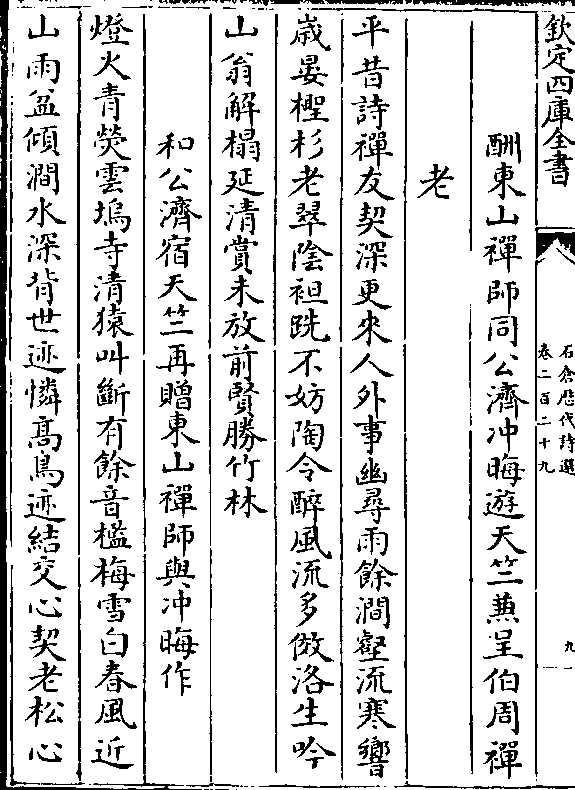 欽定四庫全書
石倉歷代詩選
卷二百二十九
九
酬東山禪師同公濟冲晦遊天竺兼呈伯周禪
老
平昔詩禪友契深更來人外事幽尋雨餘澗壑流寒響
歳晏檉杉老翠陰袒跣不妨陶令醉風流多倣洛生吟
山翁解榻延清賞未放前賢勝竹林
和公濟宿天竺再贈東山禪師與冲晦作
燈火青熒雲塢寺清猿叫斷有餘音檻梅雪白春風近
山雨盆傾澗水深背世迹憐髙鳥迹結交心契老松心